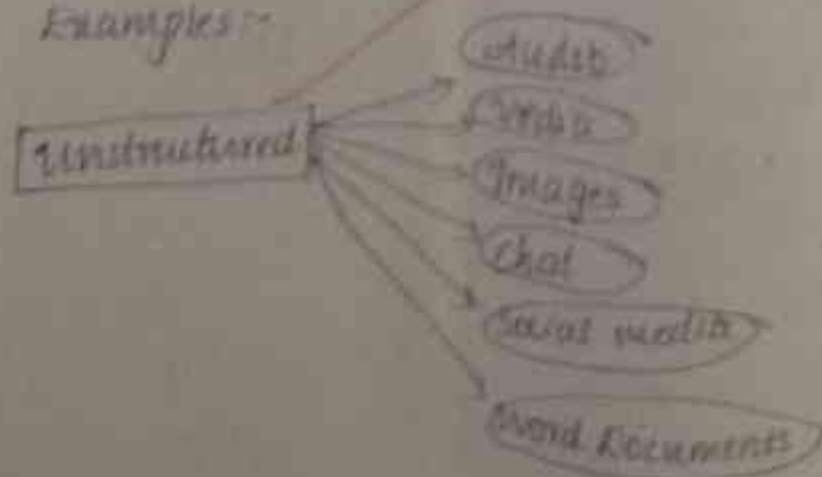 Examples:-
Audio
Unstrutured
Video
Images
Chat
Social media
Word Documents